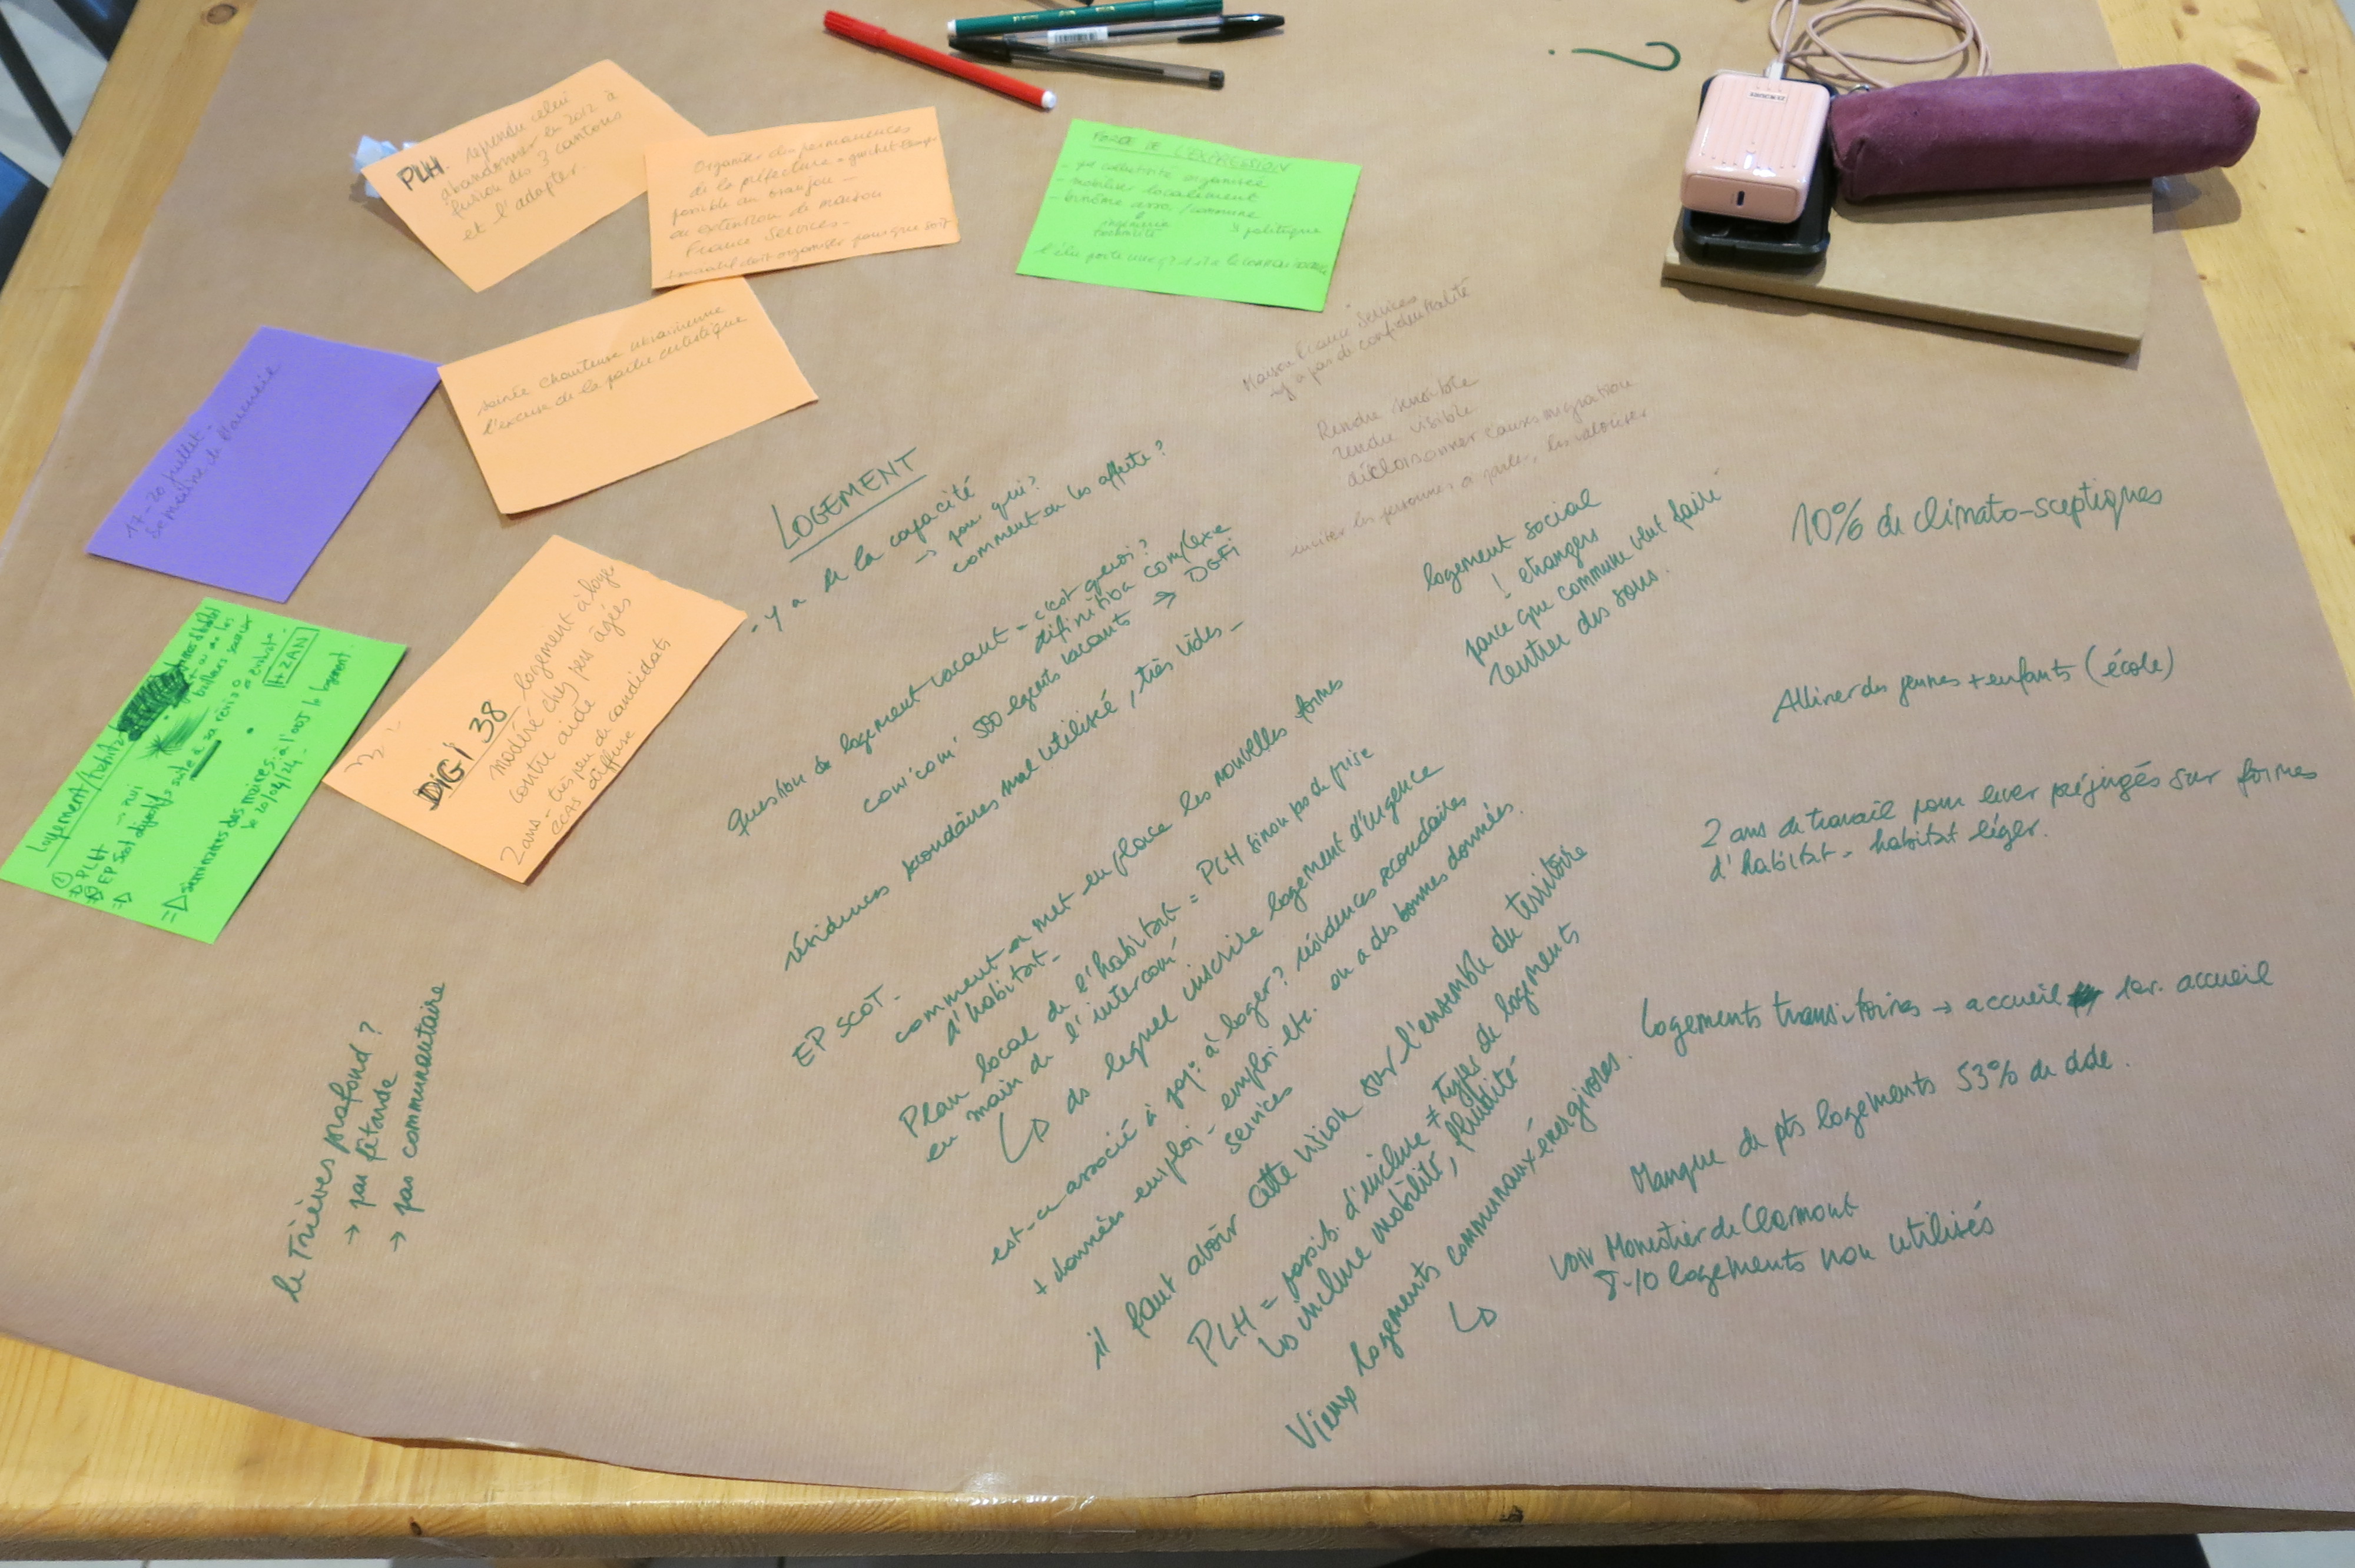 PLH. reprendre celui
abandonner en 2012 à
fusion des 3 cantons
et l'adapter.
Organiser des permanences
de la préfecture = guichet
possible au
ou extention de maison
France Services -
doit organiser pour que soit
FORCE DE L'EXPRESSION
- collectivité organisée
- mobiliser localement
- binôme asso / commune
ingénierie
technicité
politique
l'élu porte
17-20 juillet -
Semaine de
soirée chanteuse ukrainienne
l'excuse de la partie artistique
Maison France Services
y a pas de confidentialité
Rendre sensible
rendre visible
décloisonner causes migration
inciter les personnes à parler, les valoriser
LOGEMENT
- y a de la capacité
→ pour qui?
comment on les affecte?
Question du logement vacant = c'est quoi?
définition complexe
com'com' 500 logements vacants ⇒ DGFI
résidences secondaires mal utilisée, très vides -
EP SCOT -
comment on met en place les nouvelles formes
d'habitat -
Plan local de l'habitat = PLH sinon pas de prise
en main de l'intercom'
↳ ds lequel inscrire logement d'urgence
est-ce associé à à loger? résidences secondaires
+ données emploi - emploi etc. on a des bonnes données.
services
il faut avoir cette vision sur l'ensemble du territoire
PLH = possib. d'inclure ≠ types de logements
↳ inclure mobilité, fluidité
Vieux logements communaux énergivores.
↳
logement social
! etrangers
parce que commune veut faire
rentrer des sous.
10% de climato-sceptiques
Attirer des jeunes + enfants (école)
2 ans de travail pour lever préjugés sur formes
d'habitat - habitat léger.
Logements transitoires → accueil 1er. accueil
Manque de pts logements 53% de dde.
voir Monestier de Clermont
8-10 logements non utilisés
DIGI 38 - logement à loyer
modéré chez pers âgées
contre aide
2 ans - très peu de candidats
CCAS diffuse
Logement/habitat
PLH → oui
EP Scot
bailleurs
+ ZAN
⇒ séminaires des maires à l'oos le logement.
le 20/04/24.
le Trièves profond?
→ pas fêtarde
→ pas communautaire